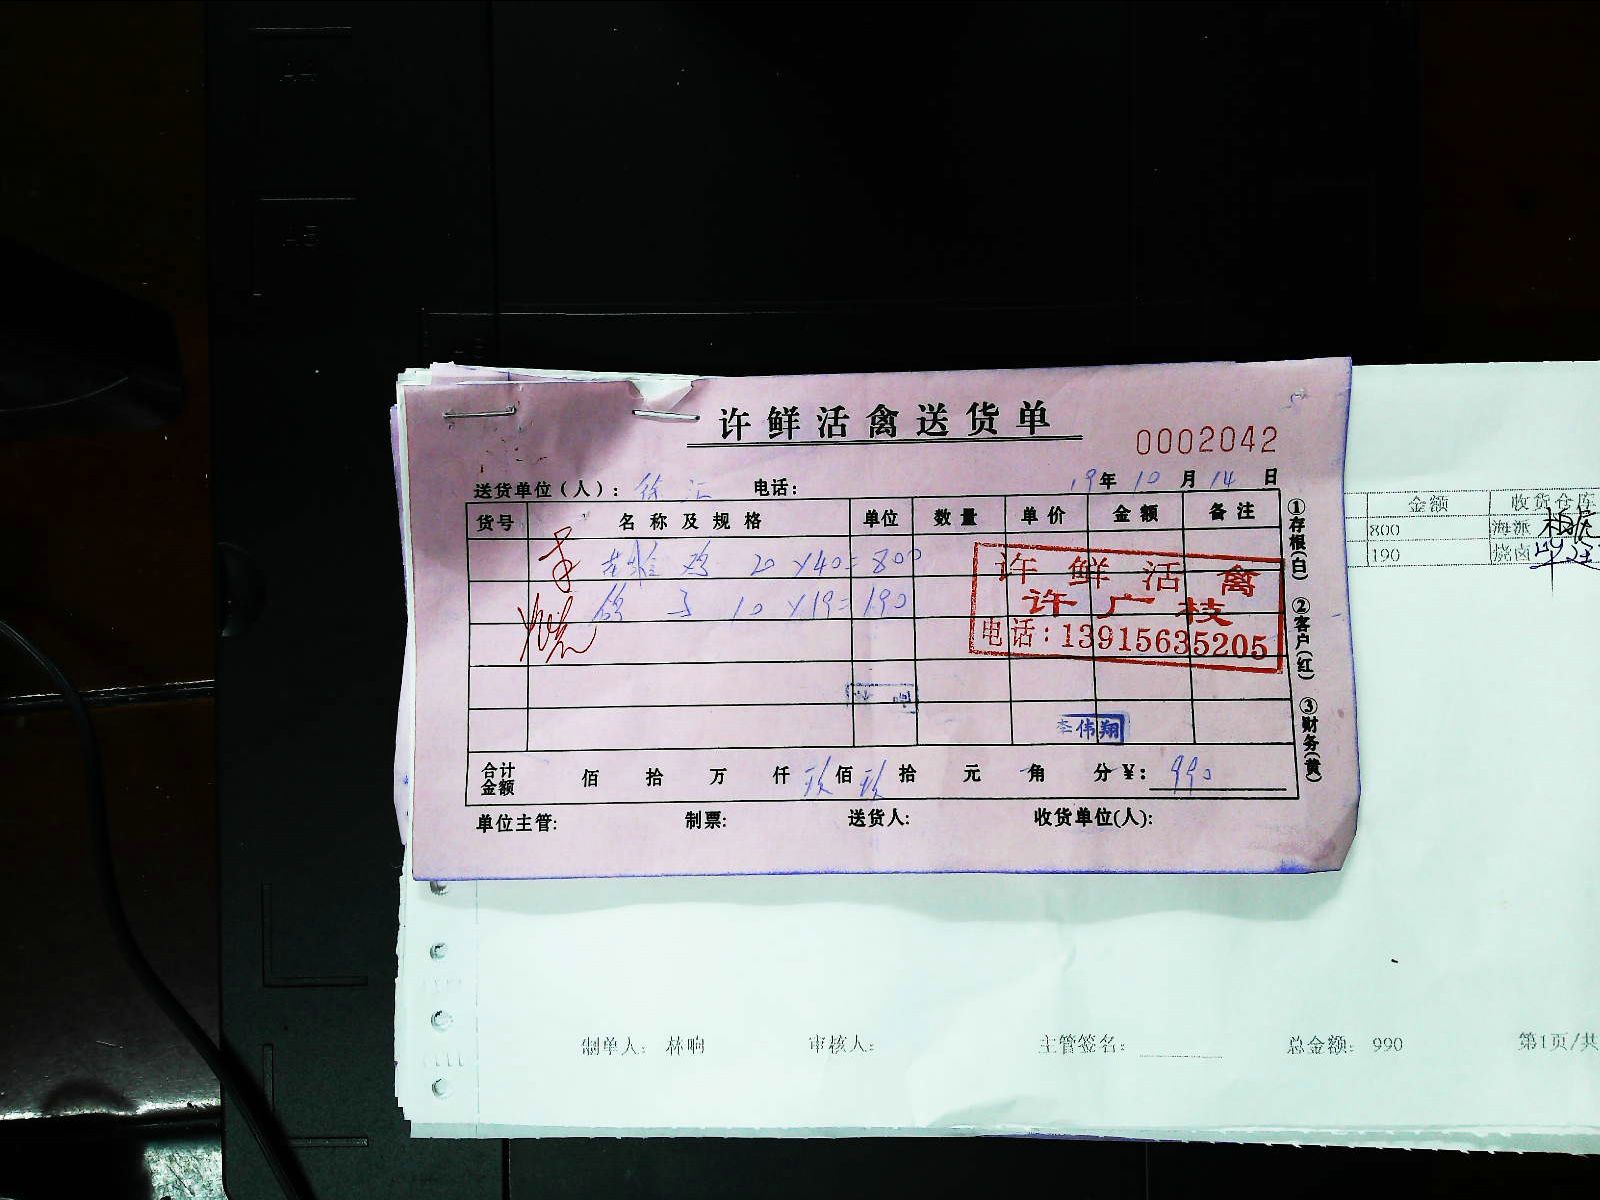 A4
A5
许鲜活禽送货单
0002042
送货单位(人): 徐汇 电话: 19年10月14日
货号 名称及规格 单位 数量 单价 金额 备注
鸡 20×40=800
鸽子 10×19=190
许鲜活禽
许广枝
电话:13915635205
李伟翔
合计金额 佰 拾 万 仟 玖佰玖拾 元 角 分 ¥: 990
单位主管: 制票: 送货人: 收货单位(人):
①存根(白) ②客户(红) ③财务(黄)
金额 收货仓库
800 海派
190 烧卤
制单人: 林响 审核人: 主管签名: 总金额: 990 第1页/共